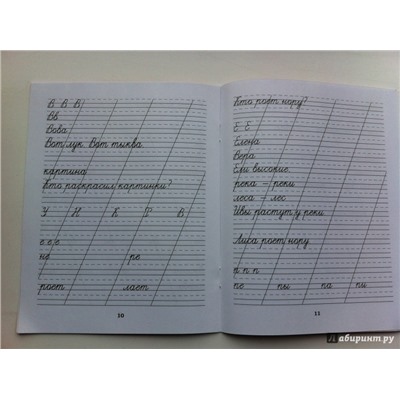 В В В
Вв
Вова
Вот лук. Вот тыква.
картина
Кто раскрасил картинки?
У И К В
е е е
не ре
роет лает
10
Кто роет нору?
Е Е
Елена
Вера
Ели высокие.
река – реки
леса – лес
Ивы растут у реки.
Лиса роет нору.
п п п
пе пы па пи
11
Лабиринт.ру